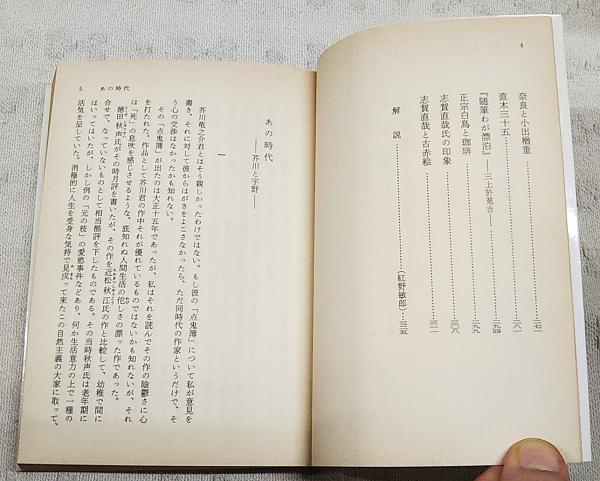 4
奈良と小出楢重……二七一
直木三十五……二八一
『随筆わが漂泊』——三上於菟吉——……二九四
正宗白鳥と珈琲……二九九
志賀直哉氏の印象……三〇八
志賀直哉と古赤絵……三一一
解説……（紅野敏郎）三一五
5 あの時代
あの時代
——芥川と宇野——
一
芥川竜之介君とはそう親しかったわけではない。もし彼の「点鬼簿」について私が意見を
書き、それに対して彼からはがきをよこさなかったら、ただ同時代の作家というだけで、そ
う心の交渉はなかったかも知れない。
その「点鬼簿」が出たのは大正十五年であったが、私はそれを読んでその作の陰鬱さに心
を打たれた。作品として芥川君の作中それが優れているものではないかも知れないが、それ
は「死」の息吹を感じさせるような、底知れぬ人間生活の侘しさの漂った作であった。
徳田秋声氏がその時月評を書いたが、その作を近松秋江氏の作と比較して、幼稚で間に
合せで、なっていないものとして相当酷評を下したものである。その当時秋声氏は老年期に
はいってはいたが、しかし例の「元の枝」の愛慾事件などあり、何か生活意力の上で一種の
活気を呈していた。消極的に人生を受身な気持で見戍って来たこの自然主義の大家に取って、